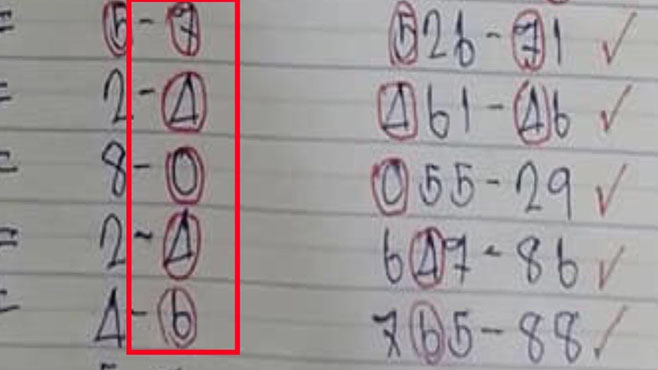 = 5-7 526-71 ✓
= 2-4 461-46 ✓
= 8-0 055-29 ✓
= 2-4 647-86 ✓
= 4-6 765-88 ✓